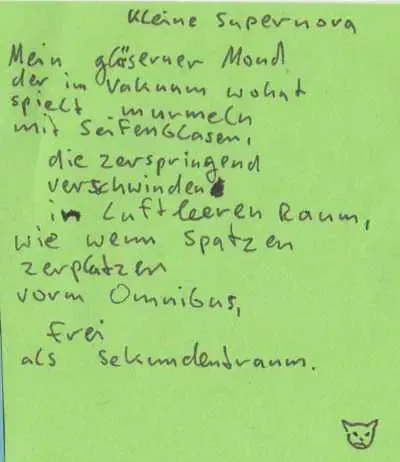 Kleine Supernova
Mein gläserner Mond
der im Vakuum wohnt
spielt murmeln
mit Seifenblasen,
die zerspringend
verschwinden
in Luftleeren Raum,
wie wenn Spatzen
zerplatzen
vorm Omnibus,
frei
als Sekundentraum.